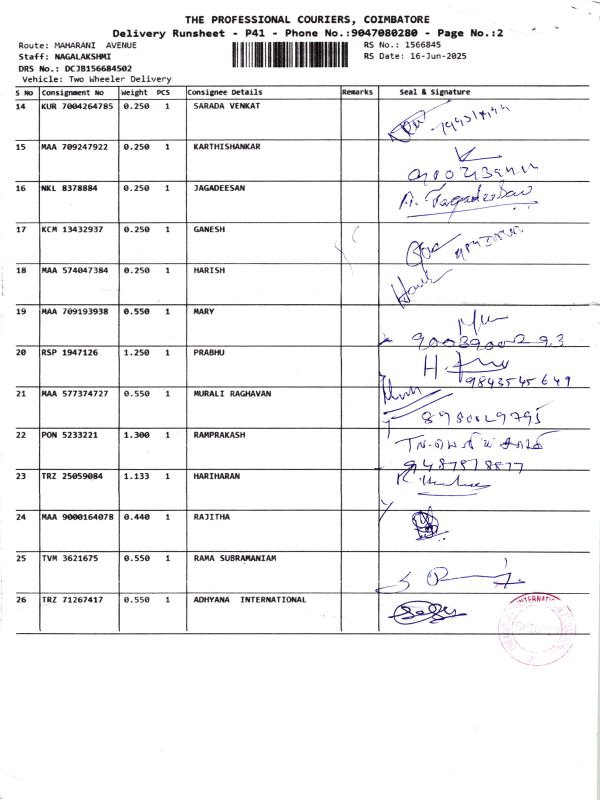 THE PROFESSIONAL COURIERS, COIMBATORE
Delivery Runsheet - P41 - Phone No.:9047080280 - Page No.:2
Route: MAHARANI AVENUE RS No.: 1566845
Staff: NAGALAKSHMI RS Date: 16-Jun-2025
DRS No.: DCJB156684502
Vehicle: Two Wheeler Delivery
S No Consignment No Weight PCS Consignee Details Remarks Seal & Signature
14 KUR 7004264785 0.250 1 SARADA VENKAT
15 MAA 709247922 0.250 1 KARTHISHANKAR
16 NKL 8378884 0.250 1 JAGADEESAN
17 KCM 13432937 0.250 1 GANESH
18 MAA 574047384 0.250 1 HARISH
19 MAA 709193938 0.550 1 MARY
9003900293
20 RSP 1947126 1.250 1 PRABHU
9843545649
21 MAA 577374727 0.550 1 MURALI RAGHAVAN
22 PON 5233221 1.300 1 RAMPRAKASH
23 TRZ 25059084 1.133 1 HARIHARAN
24 MAA 9000164078 0.440 1 RAJITHA
25 TVM 3621675 0.550 1 RAMA SUBRAMANIAM
26 TRZ 71267417 0.550 1 ADHYANA INTERNATIONAL